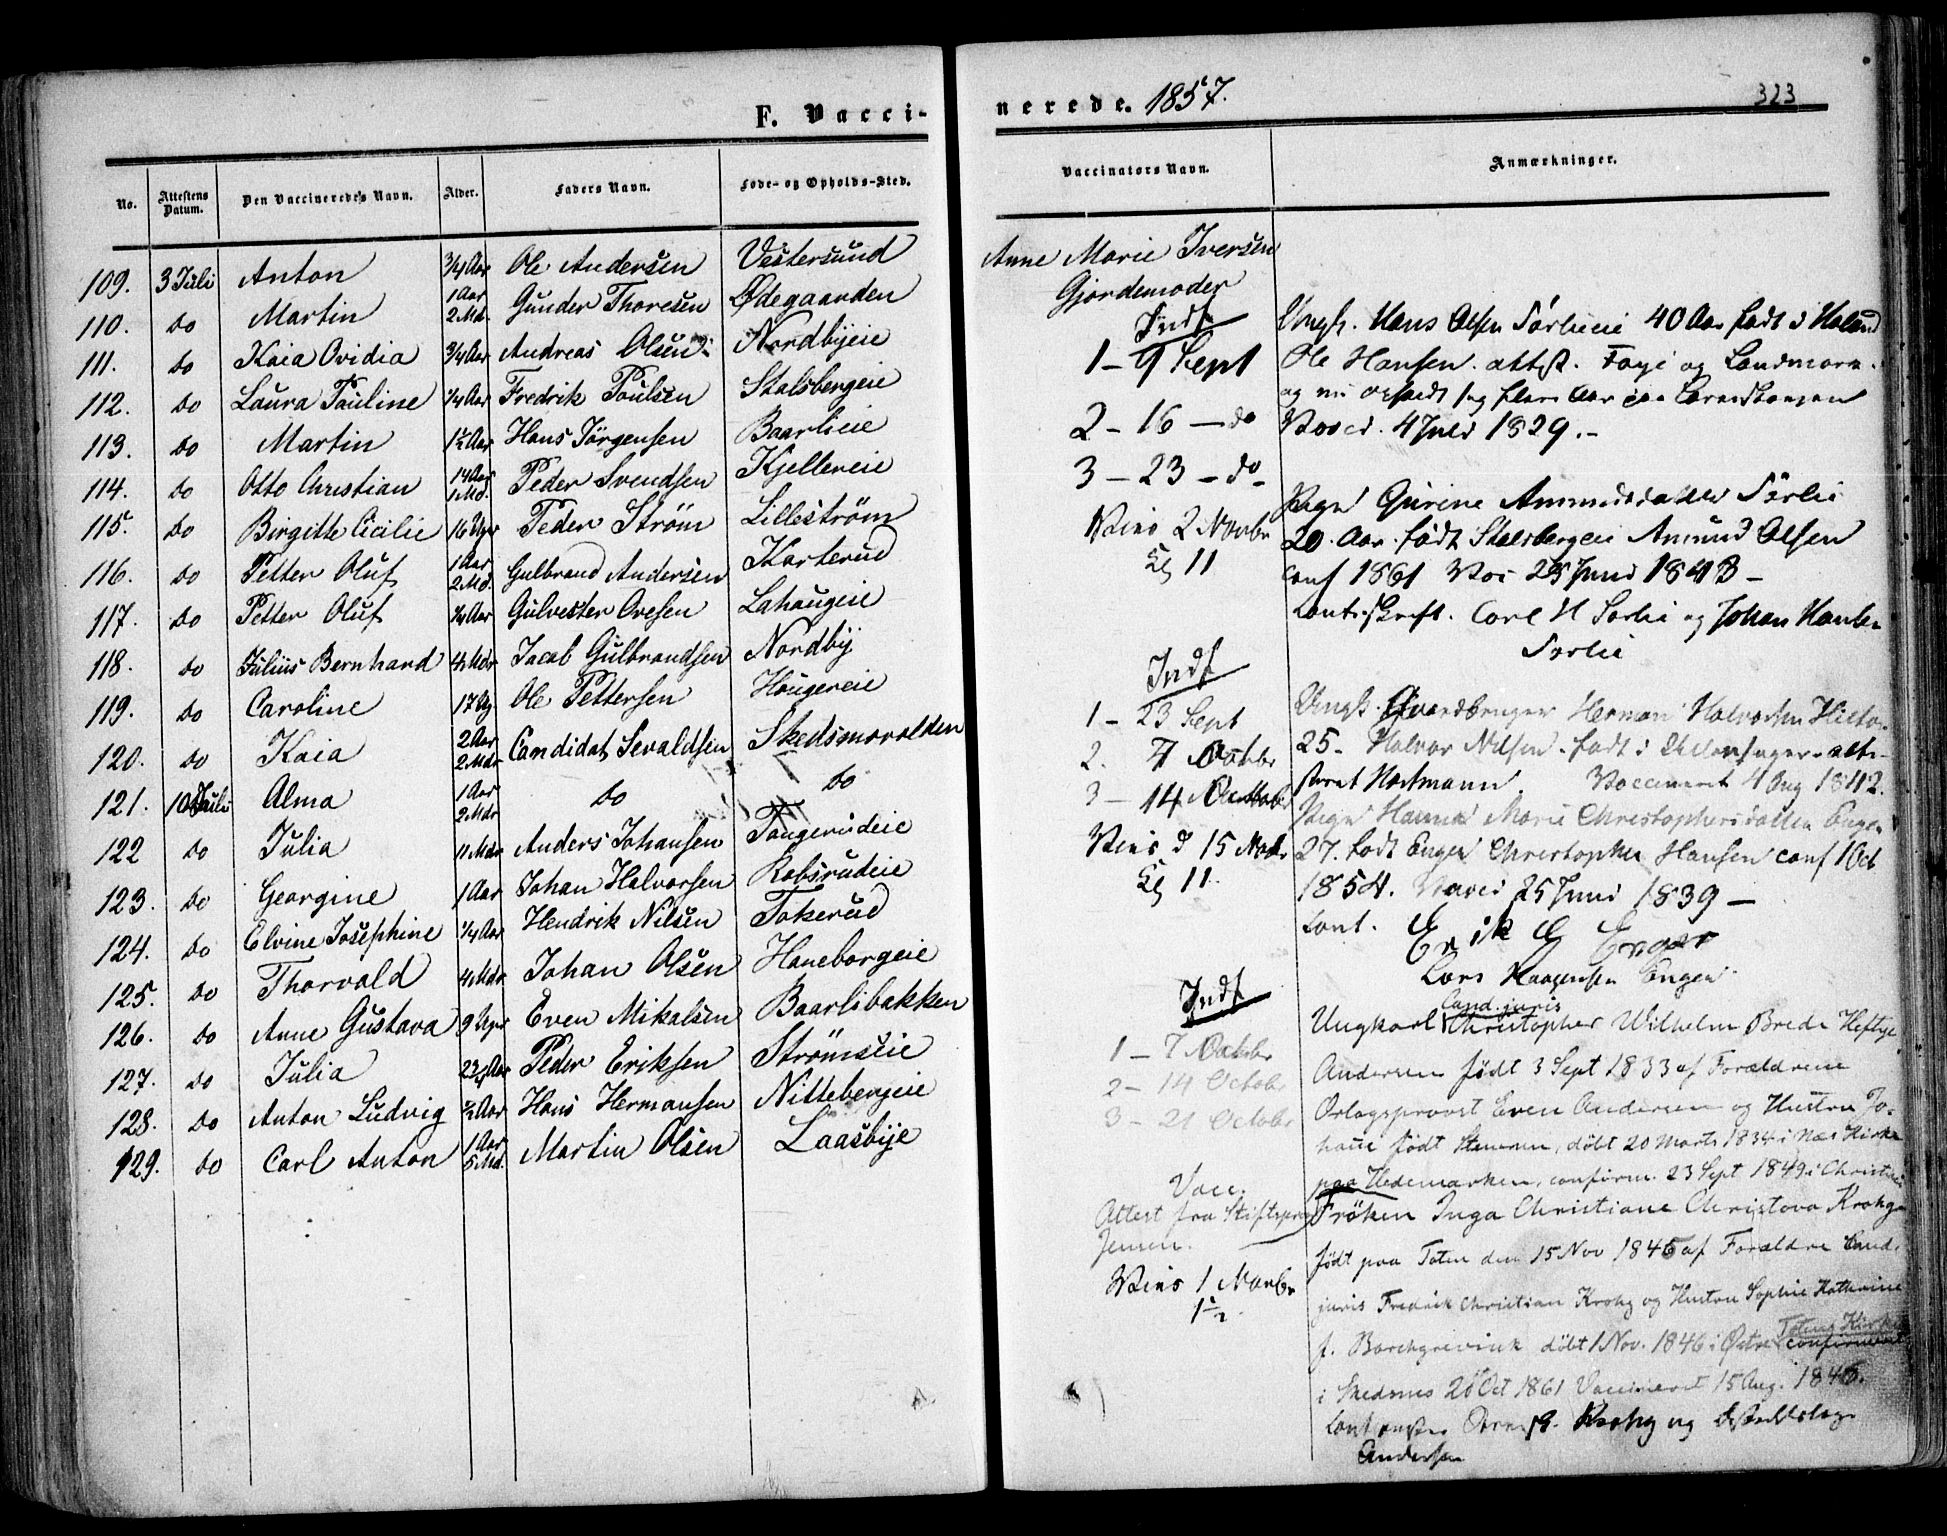 F. Vacci-
No. Attestens Datum. Den Vaccineredes Navn. Alder. Faders Navn. Føde- og Opholds-Sted.
109. 3 Juli Anton 3/4 Aar Ole Andersen Vestersund
110. do Martin 1 Aar 2 Md. Gunder Thoresen Ødegaarden
111. do Kaia Ovidia 3/4 Aar Andreas Olsen Nordbyeie
112. do Laura Pauline 1/4 Aar Fredrik Poulsen Stalsbergeie
113. do Martin 1½ Aar Hans Jørgensen Baarlieie
114. do Otto Christian 1 Md. Peder Svendsen Kjellereie
115. do Birgitte Cicilie 16 Uger Peder Strøm Lillestrøm
116. do Petter Oluf 1 Aar 2 Md. Gulbrand Andersen Karterud
117. do Petter Oluf Aar Gulvester Ovesen Lahaugeie
118. do Julius Bernhard Mdr Jacob Gulbrandsen Nordby
119. do Caroline 17 Ug Ole Pettersen Hougereie
120. do Kaia 2 Aar 2 Mdr Candidat Sevaldsen Skedsmovolden
121. 10 Juli Alma 1 Aar 2 Mdr do do
122 do Julia 11 Mdr Anders Johansen Tangerudeie
123. do Georgine 1 Aar Johan Halvorsen Robsrudeie
124. do Elvine Josephine 1/4 Aar Hendrik Nilsen Tokerud
125. do Thorvald 4 Mdr Johan Olsen Haneborgeie
126. do Anne Gustava 9 Uger Even Mikalsen Baarlibakken
127. do Julia Aar Peder Eriksen Strømseie
128. do Anton Ludvig ½ Aar Hans Hermansen Nittebergeie
129. do Carl Anton 1 Aar 5 Md. Martin Olsen Laasbye
nerede. 1857. 323
Vaccinators Navn. Anmærkninger.
Anne Marie Iversen
Gjordemoder
Indf
1 - 9 Sept
2 - 16 - do
3 - 23 - do
Vies 2 Novbr
Kl 11
Ungk. Hans Olsen Sørlieeie 40 Aar født i Holand
Ole Hansen. attest. Foye og Landmark.
Vacci. 4 Juli 1829. -
Pige Gurine Ammundsdatter Sørlie
20. Aar. født Stalsbergeie Amund Olsen
conf 1861 Vac 25 Juni 1843 -
Cont. skrift. Carl H Sørlie og Johan Hansen
Sørlie
Indf
1 - 23 Sept
2. 7 Octobr
3 - 14 October
Vies d 15 Novbr
Kl 11.
Ungk. Gaardbruger Herman Halvorsen
25 - Halvor Nilsen. født i
Hartmann. Vaccineret 4 Aug 1842.
Pige Hanna Marie Christophersdatter Engen
27. født Engen Christopher Hansen conf 1 Oct
1854. Vacci 25 Juni 1839 -
Cont. Erik E Engen
Lars Haagensen Engen
Indf
1 - 7 Octobr
2 - 14 Octobr
3 - 21 Octobr
Vacc.
Attest fra Stiftsprov
Jensen.
Vies 1 Novbr
Cand. juris
Ungkarl Christopher Wilhelm Brede Heftye
Andersen født 3 Sept 1833 af Forældrene
Orlogsprovst Even Andersen og Hustru Jo-
hanne født Stenersen, døbt 20 Marts 1834 i Næs Kirke
paa Hedemarken, confirm. 23 Sept 1849 i Christiania
Frøken Inga Christiane Christova Krohg
født paa Toten den 15 Nov 1845 af Forældre Cand.
juris Fredrik Christian Krohg og Hustru Sophie Kathrine
f. Borchgrevink døbt 1 Nov. 1846 i Østre Totens Kirke confirmeret
i Skedsmo 20 Oct 1861 Vaccineret 15 Aug. 1846.
Krohg og
Andersen